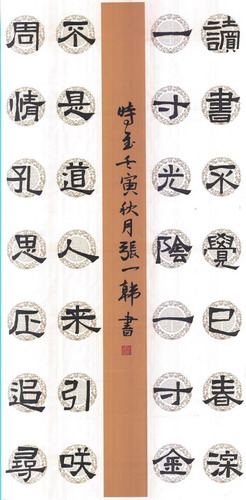 讀書不覺已春深
一寸光陰一寸金
不是道人来引咲
周情孔思正追尋
時在壬寅秋月張一韩書